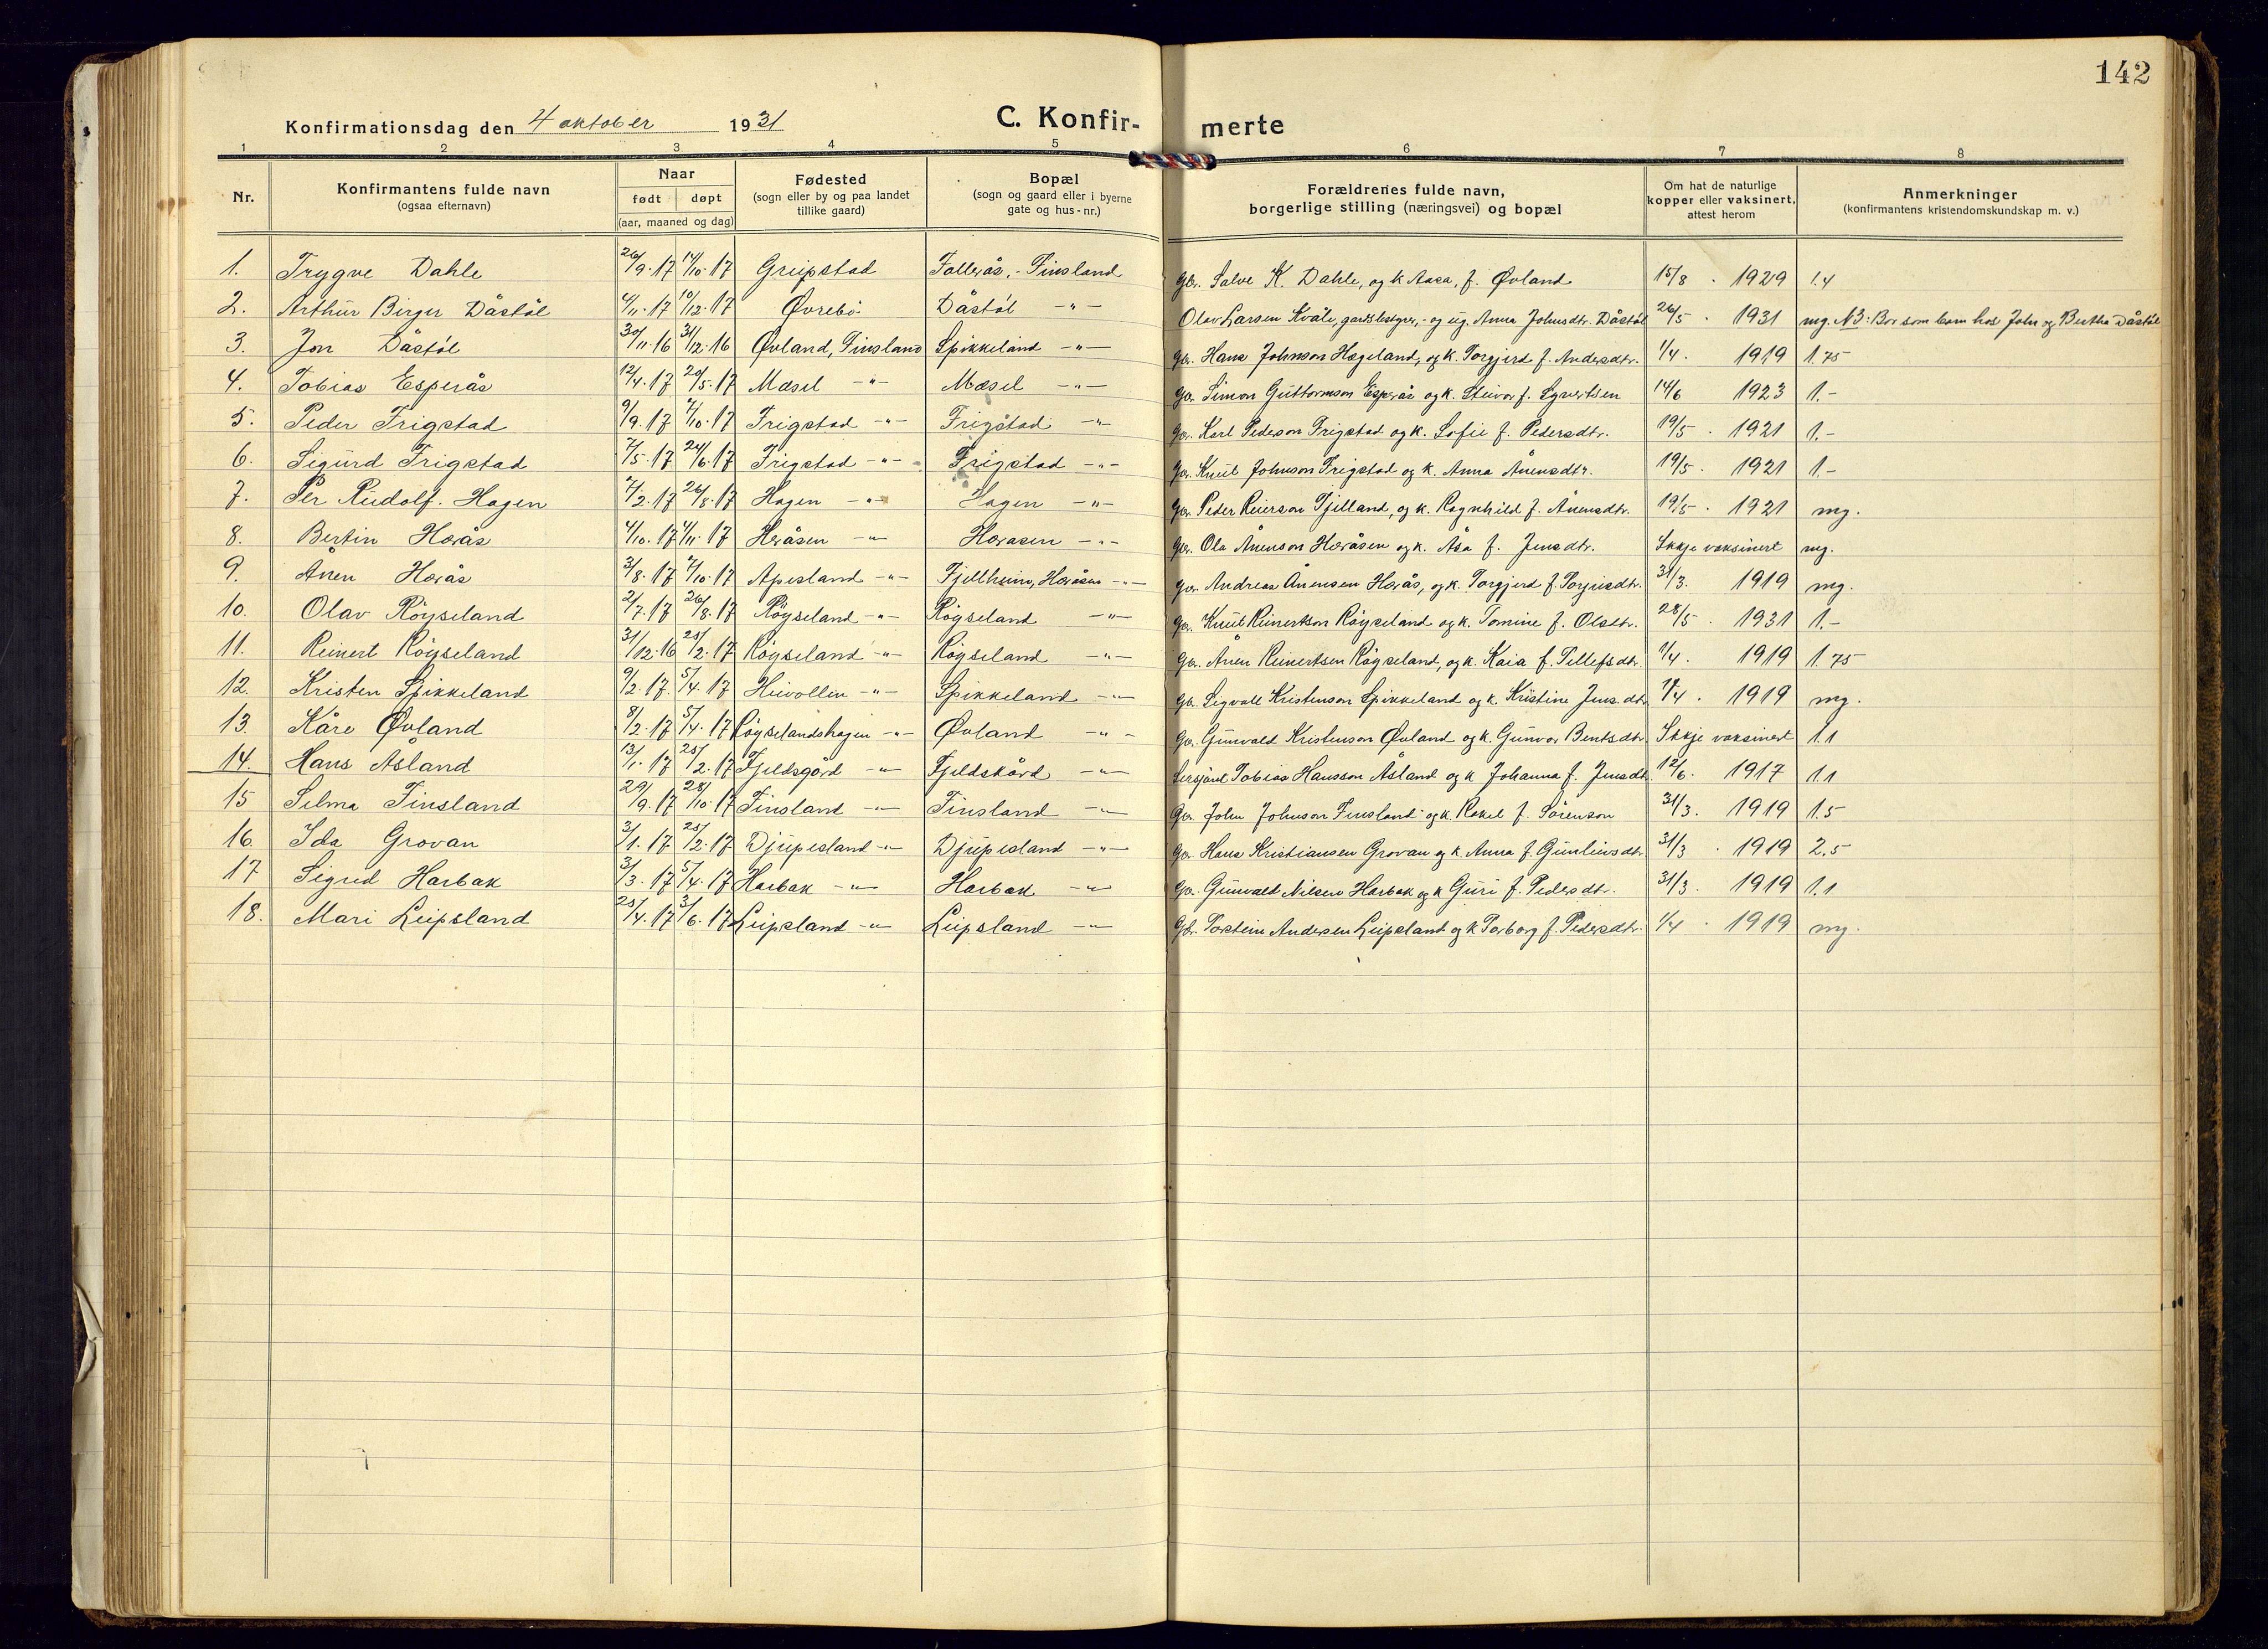 142
Konfirmationsdag den 4 oktober 1931 C. Konfir- merte
1 2 3 4 5 6 7 8
Nr. Konfirmantens fulde navn (ogsaa efternavn) Naar født døpt (aar, maaned og dag) Fødested (sogn eller by og paa landet tillike gaard) Bopæl (sogn og gaard eller i byerne gate og hus-nr.) Forældrenes fulde navn, borgerlige stilling (næringsvei) og bopæl Om hat de naturlige kopper eller vaksinert, attest herom Anmerkninger (konfirmantens kristendomskundskap m. v.)
1. Trygve Dahle 26/9.17 14/10.17 Greipstad Follerås, - Finsland Gbr. Salve K. Dahle, og k. Aasa, f. Øvland 15/8. 1929 1.4
2. Arthur Birger Dåstøl 4/11.17 10/12.17 Øvrebö Dåstøl -"- Olav Larsen Kvåle, gardsbestyrer, - og ug. Anna Johnsdtr. Dåstøl 26/5. 1931 mg. NB: Bor som barn hos John og Bertha Dåstøl
3. Jon Dåstøl 30/11.16 31/12.16 Øvland, Finsland Spikkeland -"- Gbr. Hans Johnson Hægeland, og k. Torgjerd f. Andersdtr. 1/4. 1919 1.75
4. Tobias Esperås 12/4.17 20/5.17 Mæsel -"- Mæsel -"- Gbr. Simon Guttormson Esperås og k. Steivor f. Syvertsen 14/6 1923 1.-
5. Peder Frigstad 9/9.17 7/10.17 Frigstad -"- Frigstad -"- Gbr. Karl Pederson Frigstad og k. Sofie f. Pedersdtr. 19/5. 1921 1.-
6. Sigurd Frigstad 7/5.17 24/6.17 Frigstad -"- Frigstad -"- Gbr. Knut Johnson Frigstad og k. Anna Ånensdtr. 19/5. 1921 1.-
7. Per Rudolf. Hagen 7/2.17 26/8.17 Hagen -"- Hagen -"- Gbr. Peder Reierson Fjelland, og k. Ragnhild f. Ånensdtr. 19/5. 1921 mg.
8. Bertin Hærås 4/10.17 4/11.17 Heråsen -"- Hæråsen -"- Gbr. Ola Ånenson Hæråsen og k. Åsa f. Jensdtr. Ikkje vaksinert mg.
9. Ånen Hærås 3/8.17 7/10.17 Apesland -"- Fjellheim, Hæråsen -"- Gbr. Andreas Ånensen Hærås, og k. Torgjerd f. Torjusdtr. 31/3. 1919 mg.
10. Olav Röyseland 2/7.17 26/8.17 Röyseland -"- Röyseland -"- Gbr. Knut Reinertson Röyseland og k. Tomine f. Olsdtr. 28/5. 1931 1.-
11. Reinert Röyseland 31/12.16 25/2.17 Röyseland -"- Röyseland -"- Gbr. Ånen Reinertsen Röyseland, og k. Kaia f. Tellefsdtr. 1/4. 1919 1.75
12. Kristen Spikkeland 9/2.17. 5/4.17 Heivollen -"- Spikkeland -"- Gbr. Sigvald Kristenson Spikkeland og k. Kristine Jensdtr. 1/4. 1919 mg.
13. Kåre Øvland 8/2.17 5/4.17 Röyselandshagen -"- Øvland -"- Gbr. Gunvald Kristenson Øvland og k. Gunvor Bentsdtr Ikkje vaksinert 1.1
14. Hans Åsland 13/1.17 25/2.17 Fjeldsgård -"- Fjeldskård -"- Sersjant Tobias Hansson Åsland og k Johanna f. Jensdtr. 12/6. 1917 1.1
15 Selma Finsland 29/9.17 28/10.17 Finsland -"- Finsland -"- Gbr. John Johnson Finsland og k. Rakel f. Sörenson 31/3. 1919 1.5
16. Ida Grovan 3/1.17 25/2.17 Djupesland -"- Djupesland -"- Gbr. Hans Kristiansen Grovan og k. Anna f. Gunleivsdtr. 31/3. 1919 2.5
17 Sigrid Harbak 3/3.17 5/4.17 Harbak -"- Harbak -"- Gbr. Gunvald Nilsen Harbak og k Guri f. Pedersdtr. 31/3. 1919 1.1
18. Mari Leipsland 25/4.17 3/6.17 Leipsland -"- Leipsland -"- Gbr. Torstein Andersen Leipsland og k Torborg f. Pedersdtr. 1/4. 1919 mg.